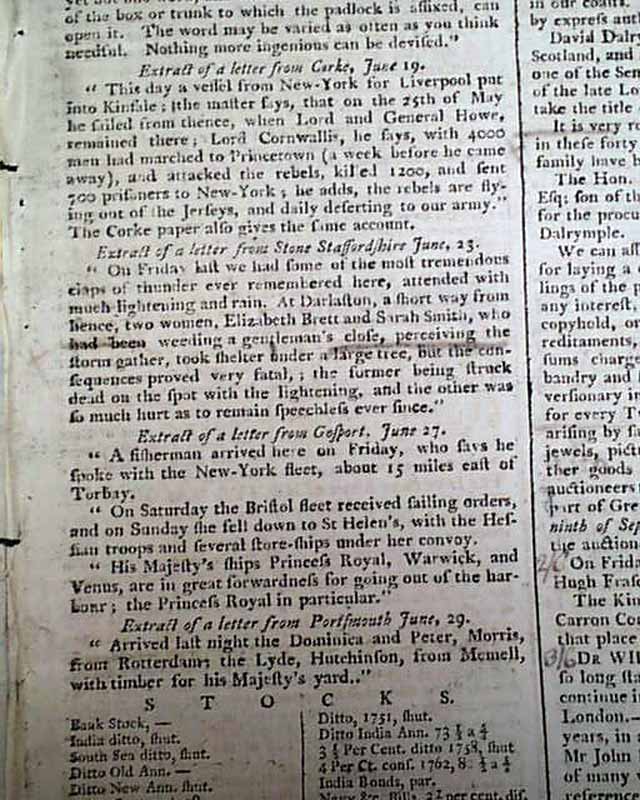 of the box or trunk to which the padlock is affixed, can
open it. The word may be varied as often as you think
needful. Nothing more ingenious can be devised."
Extract of a letter from Corke, June 19.
" This day a vessel from New-York for Liverpool put
into Kinsale ; the master says, that on the 25th of May
he sailed from thence, when Lord and General Howe,
remained there; Lord Cornwallis, he says, with 4000
men had marched to Princetown (a week before he came
away), and attacked the rebels, killed 1200, and sent
700 prisoners to New-York ; he adds, the rebels are fly-
ing out of the Jerseys, and daily deserting to our army."
The Corke paper also gives the same account.
Extract of a letter from Stone Staffordshire June, 23.
" On Friday last we had some of the most tremendous
claps of thunder ever remembered here, attended with
much lightening and rain. At Darlaston, a short way from
hence, two women, Elizabeth Brett and Sarah Smith, who
had been weeding a gentleman's close, perceiving the
storm gather, took shelter under a large tree, but the con-
sequences proved very fatal, ; the former being struck
dead on the spot with the lightening, and the other was
so much hurt as to remain speechless ever since."
Extract of a letter from Gosport, June 27.
" A fisherman arrived here on Friday, who says he
spoke with the New-York fleet, about 15 miles east of
Torbay.
" On Saturday the Bristol fleet received sailing orders,
and on Sunday she fell down to St Helen's, with the Hes-
sian troops and several store-ships under her convoy.
" His Majesty's ships Princess Royal, Warwick, and
Venus, are in great forwardness for going out of the har-
bour ; the Princess Royal in particular."
Extract of a letter from Portsmouth June, 29.
" Arrived last night the Dominica and Peter, Morris,
from Rotterdam; the Lyde, Hutchinson, from Memell,
with timber for his Majesty's yard.."
S T O C K S.
Bank Stock, —
India ditto, shut.
South Sea ditto, shut.
Ditto Old Ann. —
Ditto New Ann. shut.
Ditto, 1751, shut.
Ditto India Ann. 73 ½ a ¾
3 ½ Per Cent. ditto 1758, shut
4 Per Ct. cons. 1762, 8
India Bonds, par.
per cent. dis.
in our
by express
David Dalry
Scotland, and
one of the Sen
of the late Lo
take the title
It is very
in these forty
family have
The Hon.
Esq; son of th
for the procu
Dalrymple.
We can
for laying a
lings of the
any interest,
copyhold, o
reditaments,
sums charge
bandry and
versionary in
for every T
arising by
jewels, pict
ther goods
auctioneers
part of Gre
ninth of Sep
the auction
On Frida
Hugh Frase
The Kin
Carron Co
that place
3/6 DR
so long sta
continue
London.—
years, in a
Mr John
of many
reference